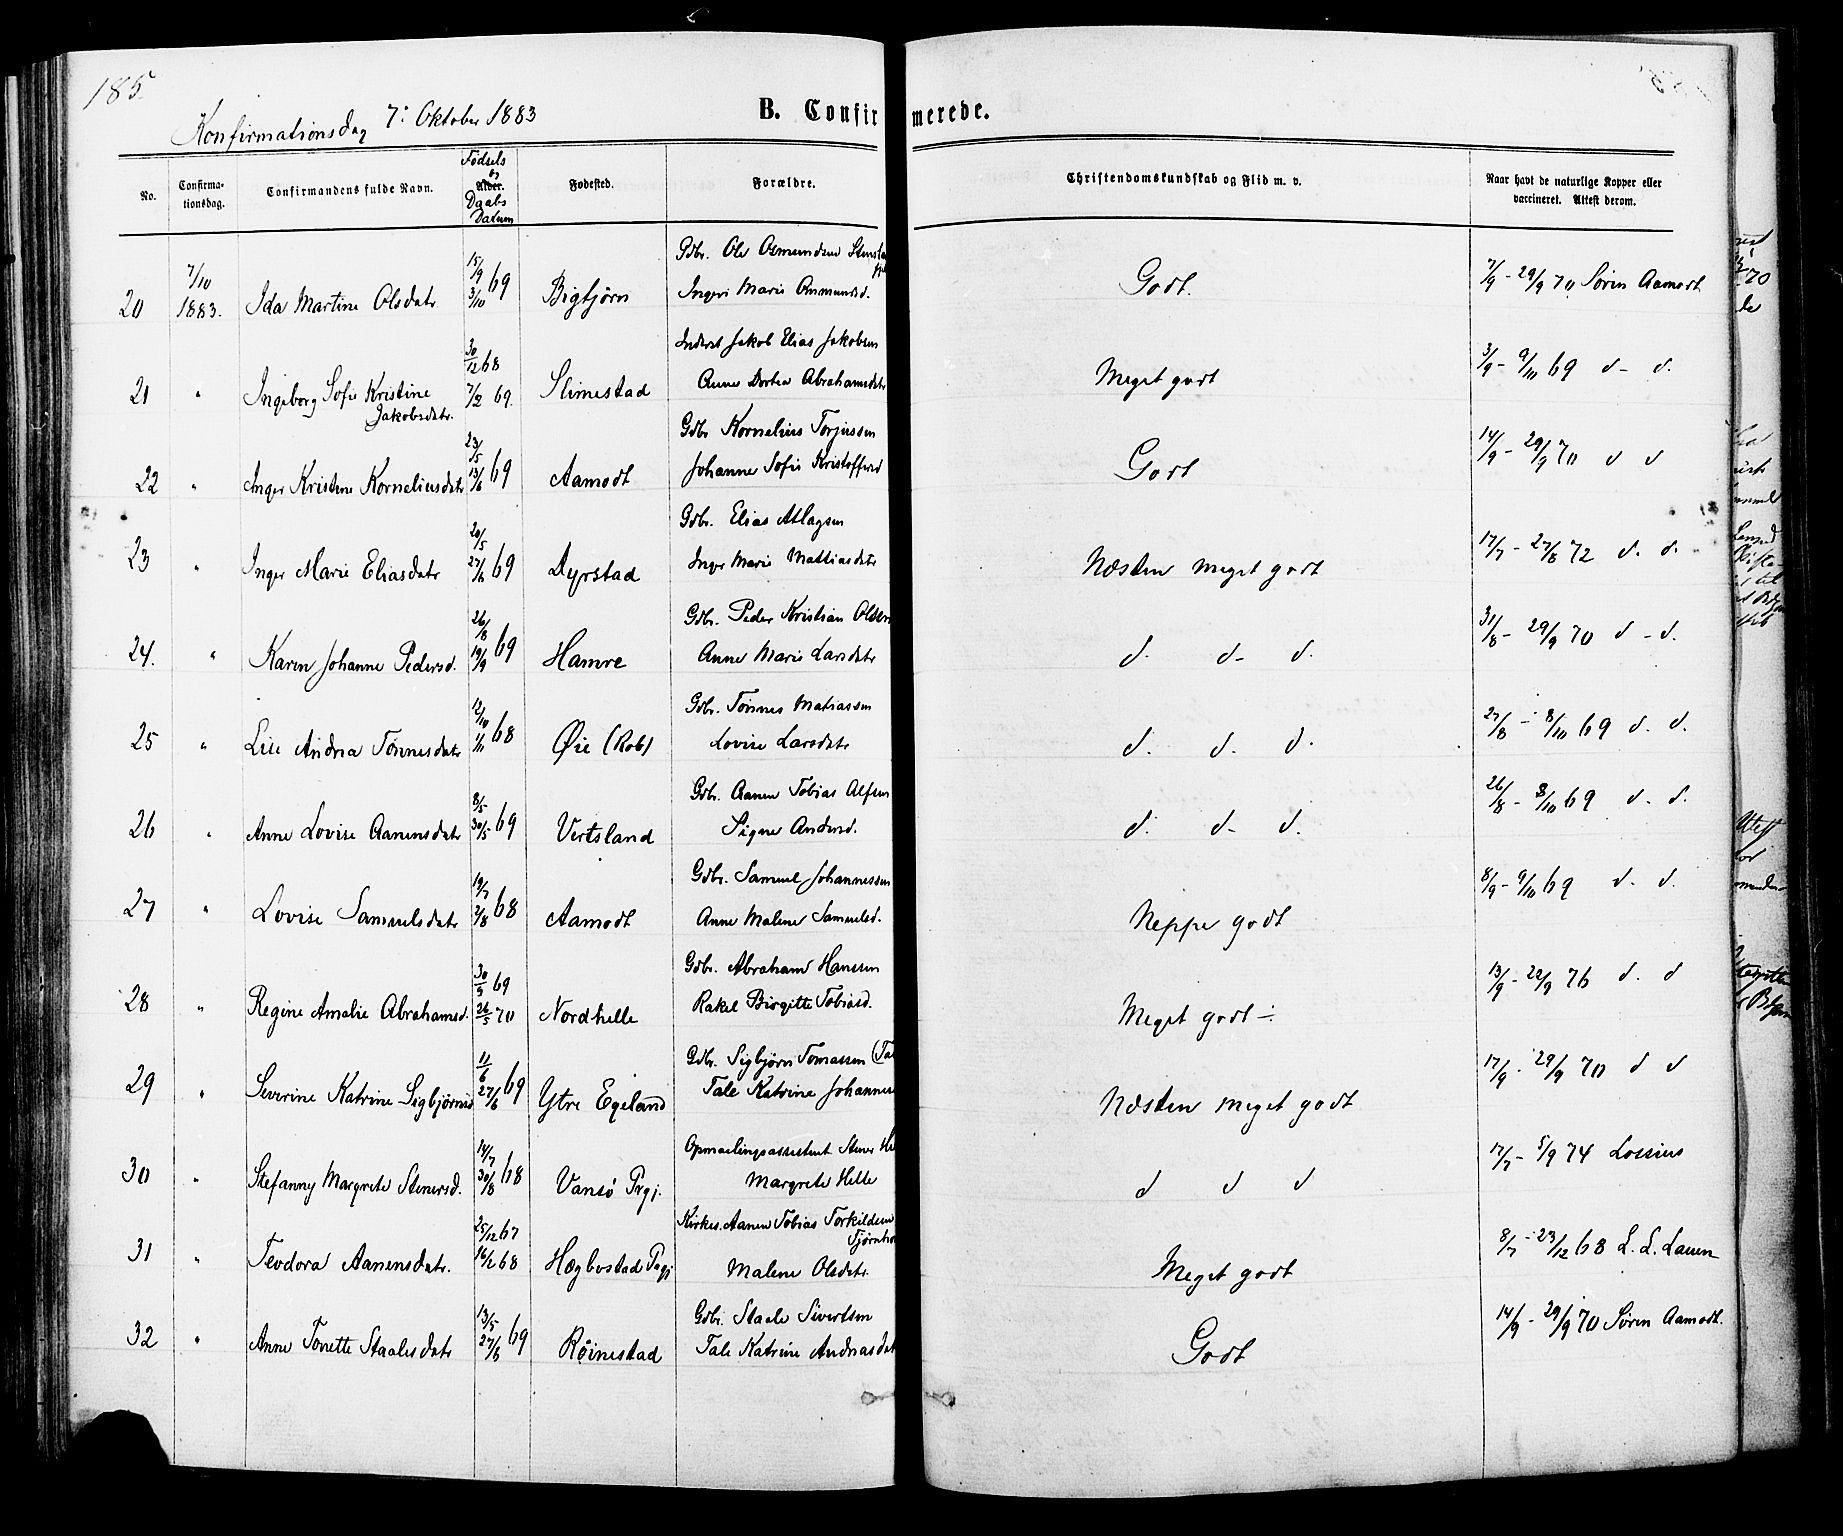 185.
Konfirmationsdag 7: Oktober 1883
B. Confirmerede.
No. Confirma-tionsdag. Confirmandens fulde Navn. Fødsels og Alder. Daabs Datum Fødested. Forældre. Christendomskundskab og Flid m. v. Naar havt de naturlige Kopper eller vaccineret. Attest derom.
Gdbr. Ole Osmundsen
20 7/10 1883. Ida Martine Olsdatr 15/9 3/10 69 Bigtjørn Ingeri Marie Ommundsd. Godt. 7/9 - 29/9 70 Søren Aamodt
Inderst Jakob Elias Jakobsen
21 " Ingeborg Sofie Kristine Jakobsdatr. 30/12 68 7/2 69. Slimestad Anne Dortea Abrahamsdatr Meget godt 3/9 - 9/10 69 d - d.
Gdbr Kornelius Torjussen
22 " Inger Kristine Korneliusdatr 23/5 13/6 69 Aamodt Johanne Sofie Kristoffersd Godt 14/9 - 29/9 70 d d
Gdbr. Elias Atlagsen
23 " Inger Marie Eliasdatr 20/5 27/6 69 Dyrstad Inger Marie Mathiasdatr Næsten meget godt 17/7 - 27/8 72 d. d.
Gdbr. Peder Kristian Olsen
24. " Karen Johanne Pedersd. 26/8 19/9 69 Hamre Anne Marie Larsdatr d. d- d. 31/8 - 29/9 70 d - d.
Gdbr. Tønnes Matiassen
25 " Lise Andrea Tønnesdatr 12/10 1/11 68 Øie (Rob) Lovise Larsdatr d. d. d. 27/8 - 8/10 69 d. d.
Gdbr. Aanen Tobias Alfsen
26 " Anne Lovise Aanensdatr 8/5 30/5 69 Vertsland Signe Andersd. d. d- d. 26/8 - 8/10 69 d. d.
Gdbr. Samuel Johannessen
27 " Lovise Samuelsdatr 19/7 2/8 68 Aamodt Anne Malene Samuelsd. Neppe godt 8/9 - 9/10 69 d. d.
Gdbr. Abraham Hansen
28 " Regine Amalie Abrahamsd. 30/5 69 26/5 70 Nordhelle Rakel Birgitte Tobiasd. Meget godt ÷ 13/9 - 22/9 76 d. d
Gdbr. Sigbjørn Tomassen
29 " Severine Katrine Sigbjørnsd 11/6 27/6 69 Ytre Egeland Tale Katrine Johannes Næsten meget godt 17/9 - 29/9 70 d d
Opmaalingsassistent Stener
30 " Stefanny Margrete Stenersd. 14/7 30/8 68 Vansø Prgj. Margrete Helle d d d 17/7 - 5/9 74 Lossius
Kirkes. Aanen Tobias Torkildsen
31 " Teodora Aanensdatr. 25/12 67 16/2 68 Hægbostad Prgj Malene Olsdatr. Meget godt 8/7 - 23/12 68 L. L. Lauen
Gdbr. Staale Sivertsen
32 " Anne Tonette Staalesdatr 13/5 27/6 69 Røinestad Tale Katrine Andreasdat Godt 14/9 - 29/9 70 Søren Aamodt.